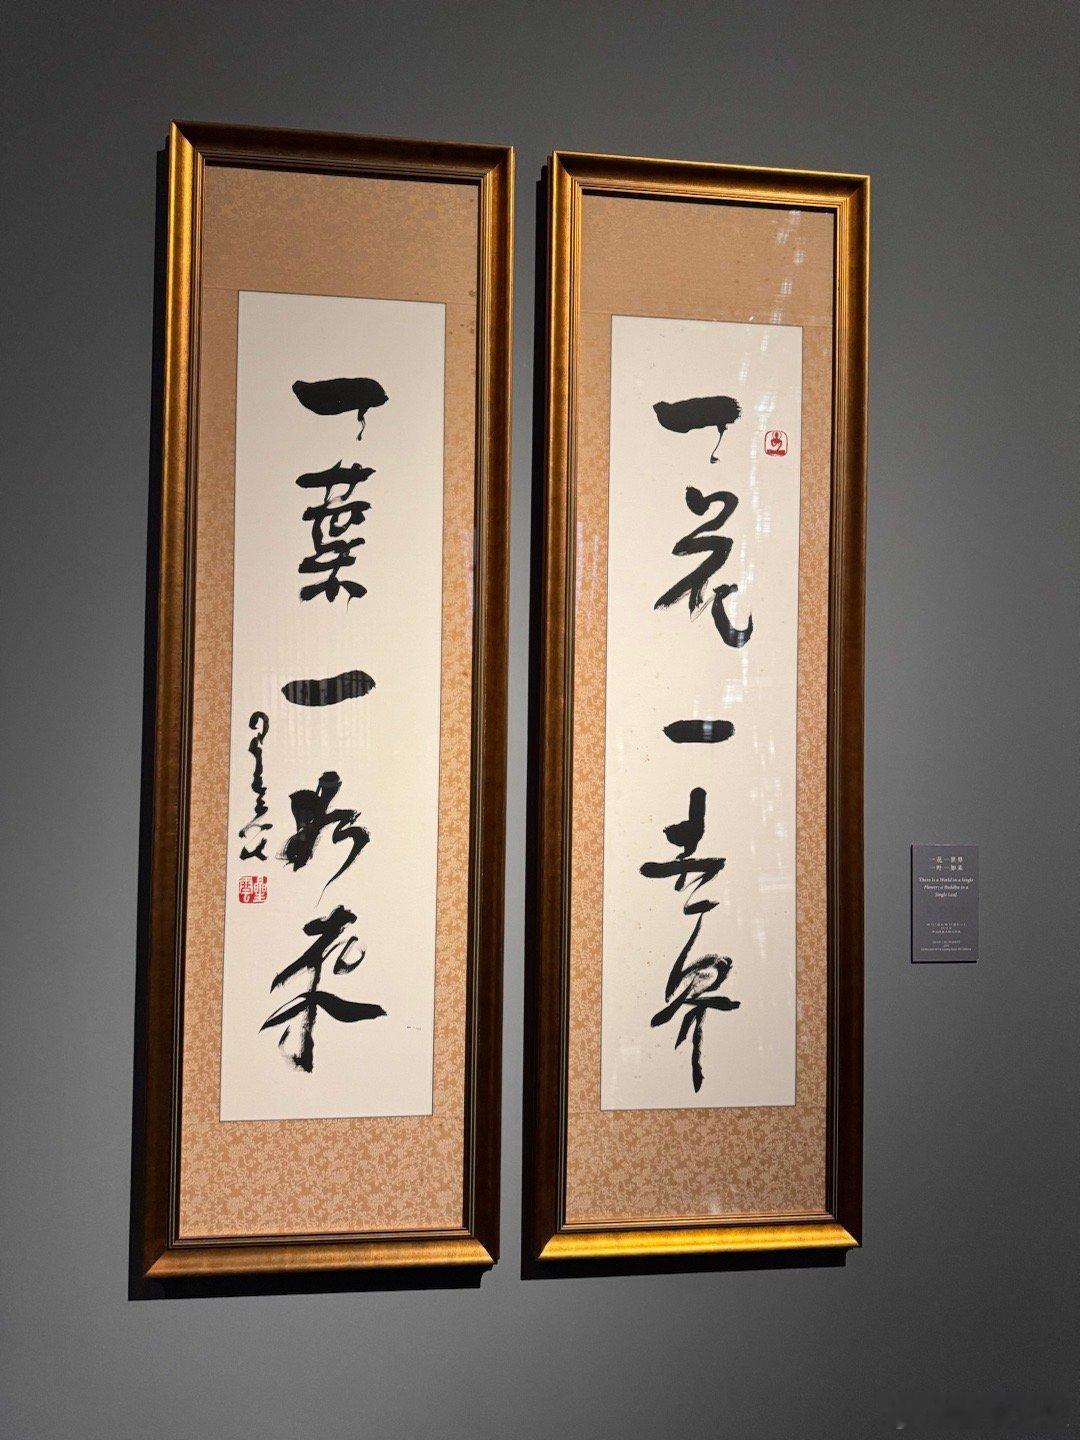 一花一世界
一葉一如来
星雲
一花一世界
一叶一如来
There Is a World in a Single
Flower; a Buddha in a
Single Leaf